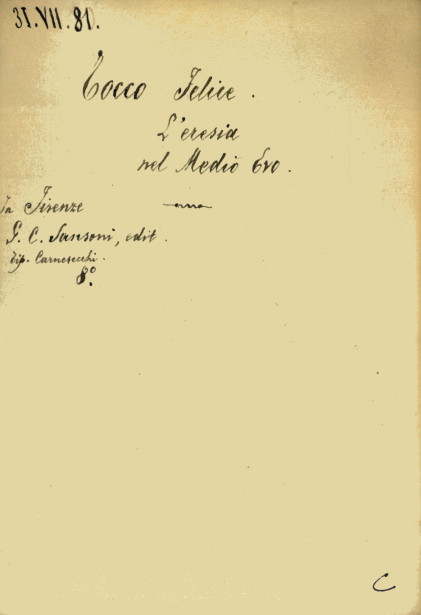 31.VII.81.
Tocco Felice.
L'eresia
nel Medio Evo.
In Firenze
G. C. Sansoni, edit.
tip. Carnesecchi.
8º.
C